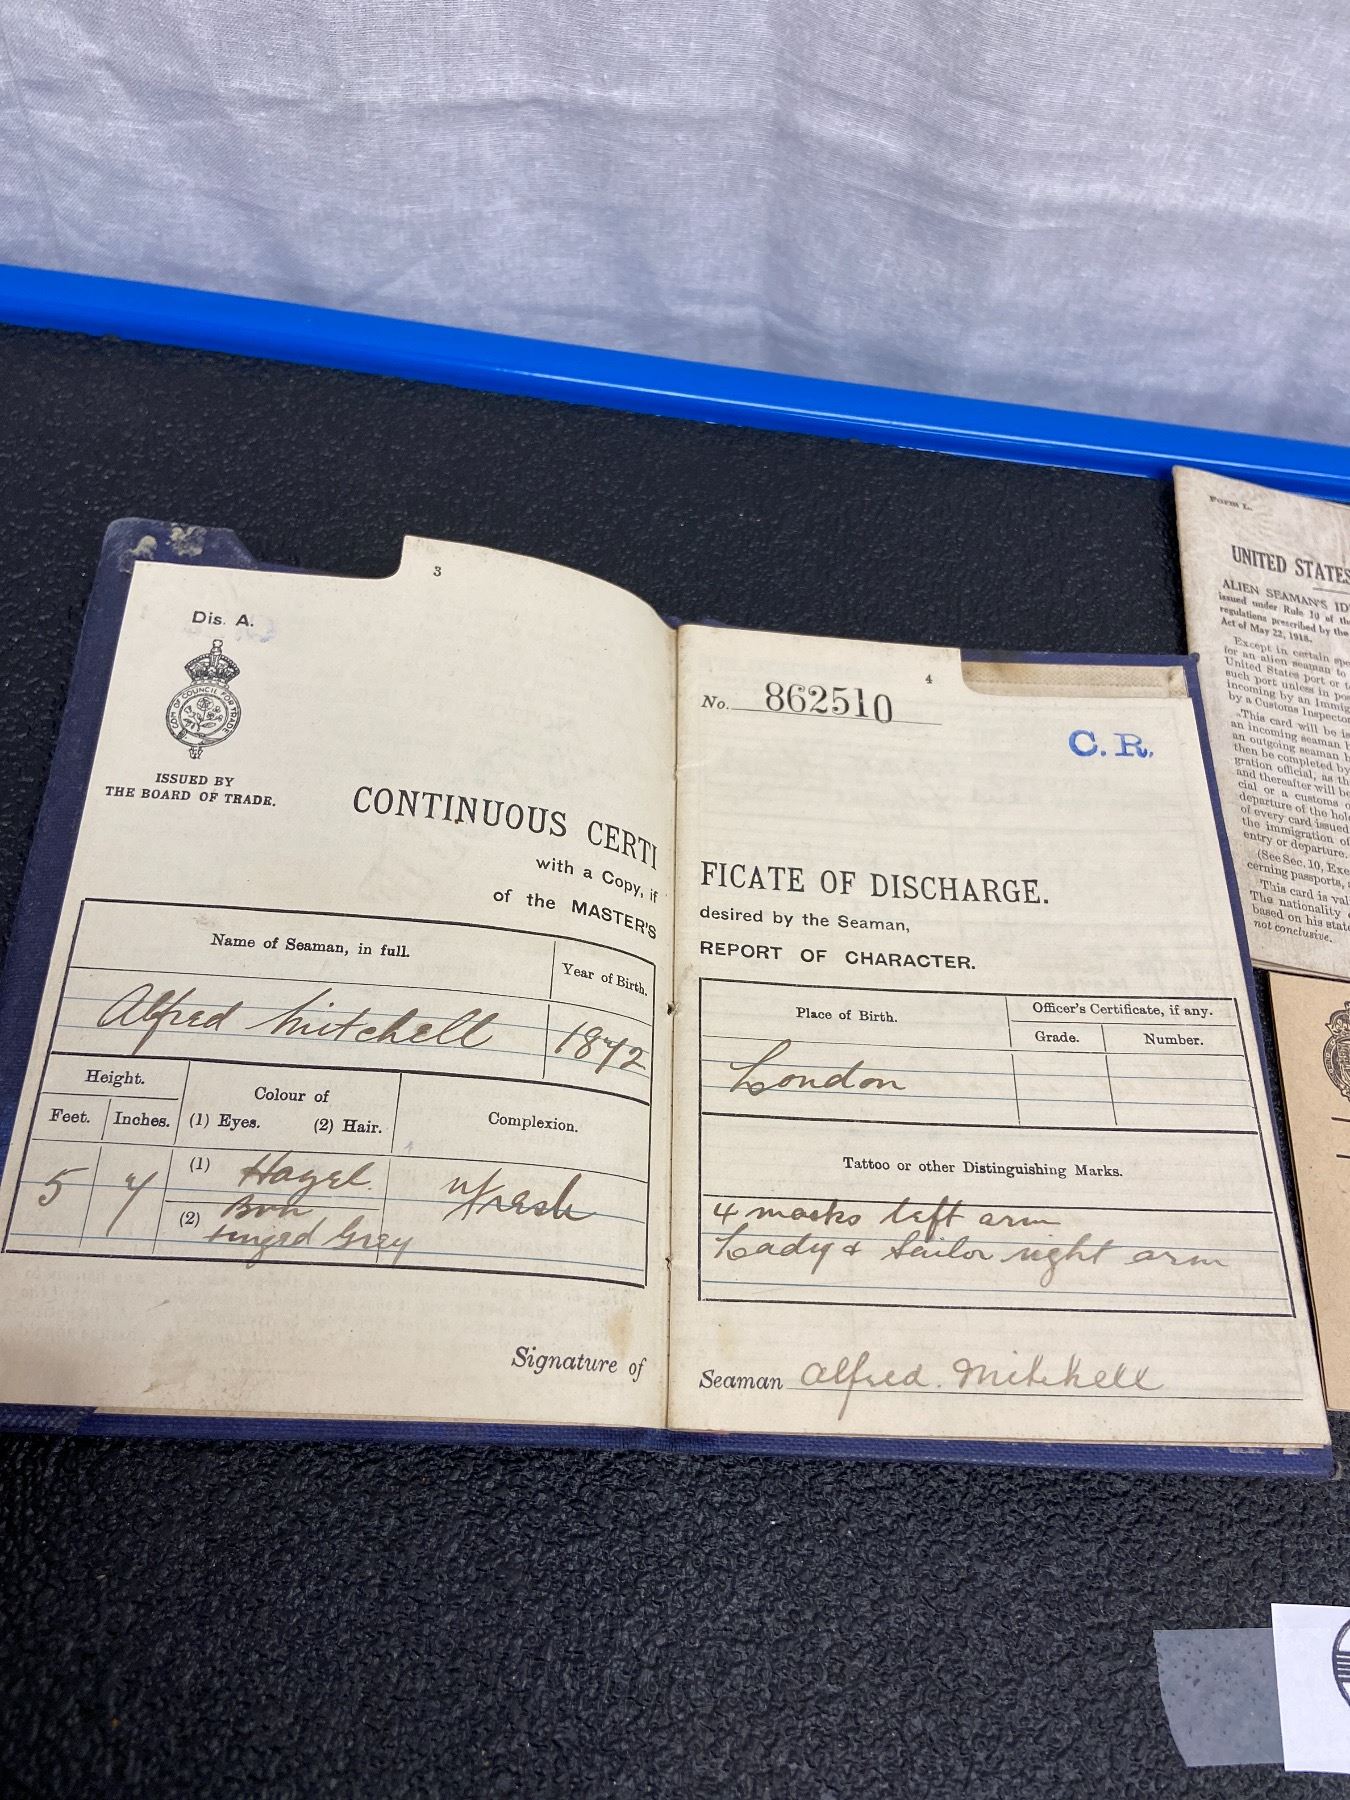 3
Dis. A.
SEAL OF COUNCIL FOR TRADE
ISSUED BY
THE BOARD OF TRADE.
CONTINUOUS CERTI
with a Copy, if
of the MASTER'S
Name of Seaman, in full.
Year of Birth.
Alfred Mitchell
1872
Height.
Feet.
Inches.
Colour of
(1) Eyes.
(2) Hair.
Complexion.
5
(1) Hazel.
(2) Brn
tinged Grey
fresh
Signature of
4
No. 862510
C.R.
FICATE OF DISCHARGE.
desired by the Seaman,
REPORT OF CHARACTER.
Place of Birth.
Officer's Certificate, if any.
Grade.
Number.
London
Tattoo or other Distinguishing Marks.
4 marks left arm
Lady & Sailor right arm
Seaman Alfred. Mitchell
Form L.
UNITED STATES
ALIEN SEAMAN'S ID
issued under Rule 10 of the
regulations prescribed by the
Act of May 22, 1918.
Except in certain spe
for an alien seaman to
United States port or t
such port unless in po
incoming by an Immig
by a Customs Inspector
This card will be is
an incoming seaman b
an outgoing seaman b
then be completed by
gration official, as th
and thereafter will be
cial or a customs o
departure of the hol
of every card issued
the immigration of
entry or departure.
(See Sec. 10, Exe
cerning passports,
This card is val
The nationality
based on his state
not conclusive.